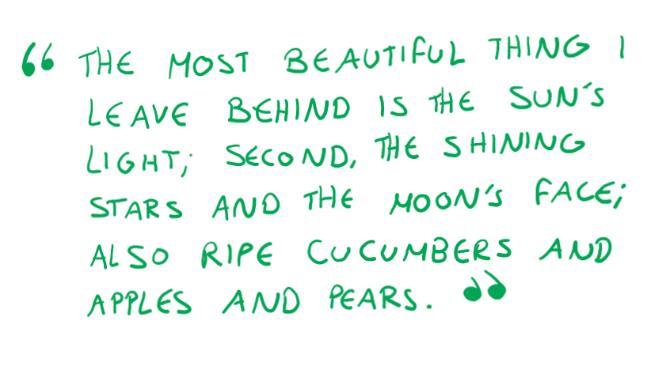 “ THE MOST BEAUTIFUL THING I
LEAVE BEHIND IS THE SUN'S
LIGHT; SECOND, THE SHINING
STARS AND THE MOON'S FACE;
ALSO RIPE CUCUMBERS AND
APPLES AND PEARS. ”